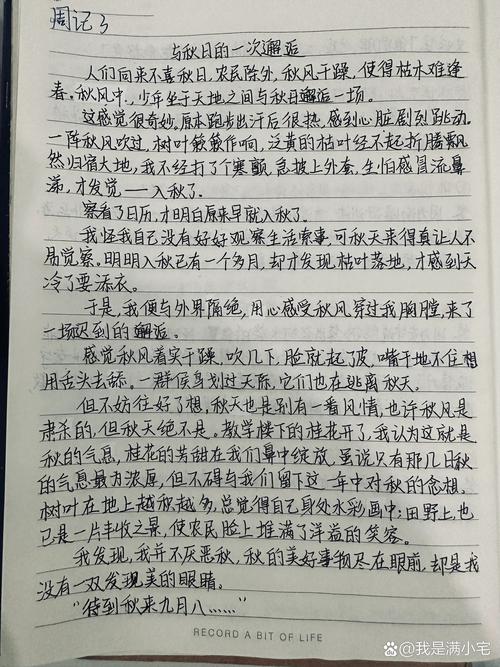 周记3
与秋日的一次邂逅
人们向来不喜秋日,农民除外,秋风干燥,使得枯木难逢
春。秋风中,少年坐于天地之间与秋日邂逅一场。
这感觉很奇妙。原本跑步出汗后很热,感到心脏剧烈跳动。
一阵秋风吹过,树叶簌簌作响,泛黄的枯叶经不起折腾飘
然归宿大地,我不经打了个寒颤,急披上外套,生怕感冒流鼻
涕,才发觉——入秋了。
察看了日历,才明白原来早就入秋了。
我怪我自己没有好好观察生活琐事,可秋天来得真让人不
易觉察。明明入秋已有一个多月,却才发现枯叶落地,才感到天
冷了要添衣。
于是,我便与外界隔绝,用心感受秋风穿过我胸膛,来了
一场迟到的邂逅。
感觉秋风着实干燥,吹几下,脸就起了皮,嘴干地不住想
用舌头去舔。一群候鸟划过天际,它们也在逃离秋天。
但不妨往好了想,秋天也是别有一番风情,也许秋风是
肃杀的,但秋天绝不是。教学楼下的桂花开了,我认为这就是
秋的气息,桂花的苦甜在我们鼻中绽放,虽说只有那几日秋
的气息最为浓厚,但不得与我们留下这一年中对秋的念想。
树叶在地上越积越多,总觉得自己身处水彩画中;田野上,也
已是一片丰收之景,使农民脸上堆满了洋溢的笑容。
我发现,我并不厌恶秋,秋的美好事物尽在眼前,却是我
没有一双发现美的眼睛。
“待到秋来九月八……”
RECORD A BIT OF LIFE
@我是满小宅